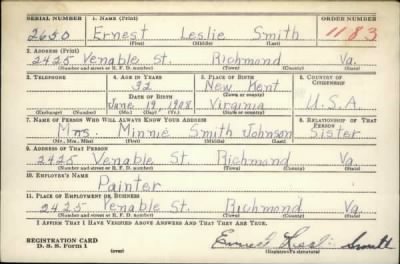 SERIAL NUMBER 1. NAME (Print) ORDER NUMBER
2650 Ernest Leslie Smith 1183
(First) (Middle) (Last)
2. ADDRESS (Print)
2425 Venable St. Richmond Va.
(Number and street or R. F. D. number) (Town) (County) (State)
3. TELEPHONE 4. AGE IN YEARS 5. PLACE OF BIRTH 6. COUNTRY OF CITIZENSHIP
32 New Kent
DATE OF BIRTH (Town or county)
June 19, 1908 Virginia U.S.A.
(Exchange) (Number) (Mo.) (Day) (Yr.) (State or country)
7. NAME OF PERSON WHO WILL ALWAYS KNOW YOUR ADDRESS 8. RELATIONSHIP OF THAT PERSON
Mrs. Minnie Smith Johnson Sister
(Mr., Mrs., Miss) (First) (Middle) (Last)
9. ADDRESS OF THAT PERSON
2425 Venable St. Richmond Va.
(Number and street or R. F. D. number) (Town) (County) (State)
10. EMPLOYER'S NAME
Painter
11. PLACE OF EMPLOYMENT OR BUSINESS
2425 Venable St. Richmond Va.
(Number and street or R. F. D. number) (Town) (County) (State)
I AFFIRM THAT I HAVE VERIFIED ABOVE ANSWERS AND THAT THEY ARE TRUE.
REGISTRATION CARD
D. S. S. Form 1 (over) (Registrant's signature)
Ernest Smith